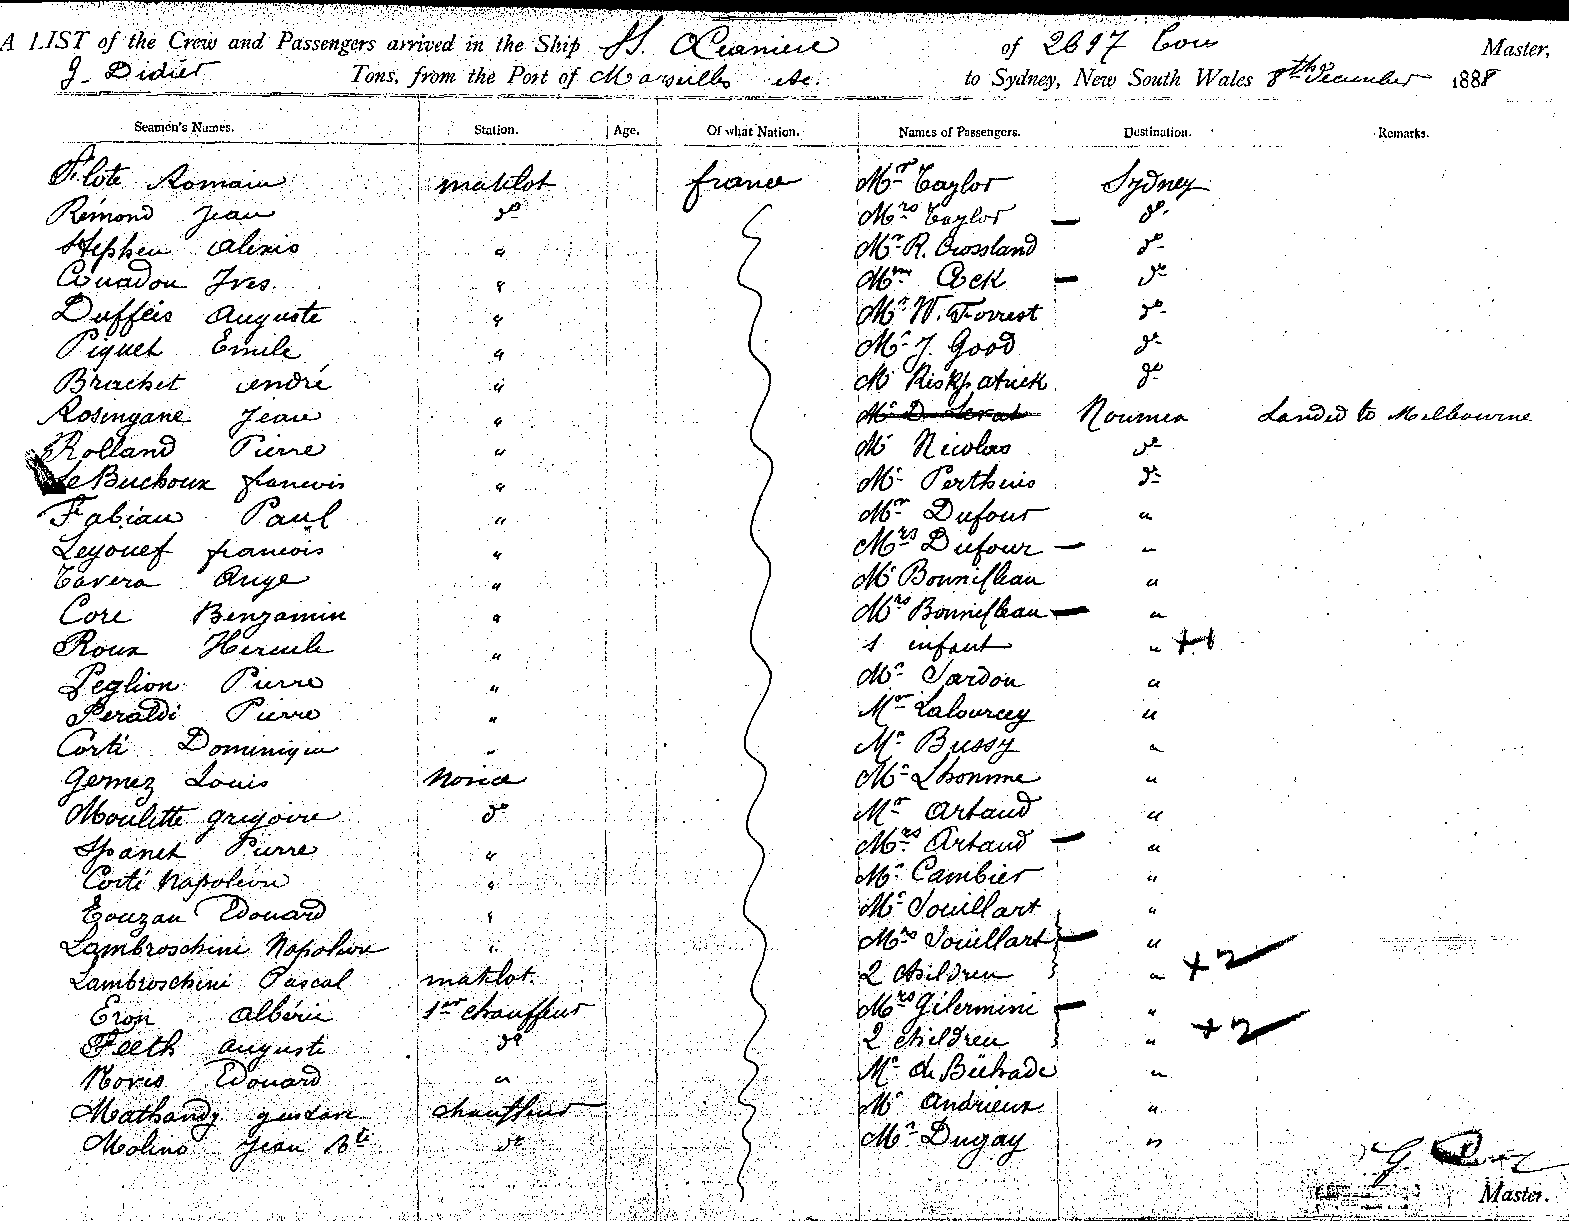 A LIST of the Crew and Passengers arrived in the Ship SS. Océanien of 2697 Tons Master,
J. Didier Tons, from the Port of Marseilles etc. to Sydney, New South Wales 8th December 1888
Seamen's Names. Station. Age. Of what Nation. Names of Passengers. Destination. Remarks.
Pilote Romain matelot france Mr Taylor Sydney
Rémond Jean do Mrs Taylor — do
Stephen Alexis " Mr R. Crossland do
Yves " Mme Cock — do
Duffeis Auguste " Mr W. Forrest do
Piquet Emile " Mr J. Good do
Brachet André " Mr Kirkpatrick do
Rosingane Jean " Noumea Landed to Melbourne
Rolland Pierre " Mr Nicolas do
Le Buchoux francois " Mr Perthuis do
Fabian Paul " Mr Dufour "
Leyouef francois " Mrs Dufour — "
Tavera Ange " Mr Bonnefleau "
Core Benzamin " Mrs Bonnefleau — "
Roux Hercule " 1 infant "
Peglion Pierre " Mr Sardou "
Peraldi Pierre " Mr Lalourcey "
Corti Dominique " Mr Bussy "
Gemez Louis Novice Mr Lhomme "
Moulette gregoire do Mr Artaud "
Spanet Pierre " Mrs Artaud — "
Corti Napoléon " Mr Cambier "
Touzan Edouard " Mr Souillart "
Lambroschini Napoléon " Mrs Souillart — "
Lambroschini Pascal matelot. 2 Children " +2
Eron Albéric 1er chauffeur Mrs Gilermini — "
Feeth auguste do 2 Children " +2
Novis Edouard " Mr de Béchade "
Mathandy gustave chauffeur Mr Andrieux "
Molino Jean Bte do Mr Dugay "
Master.